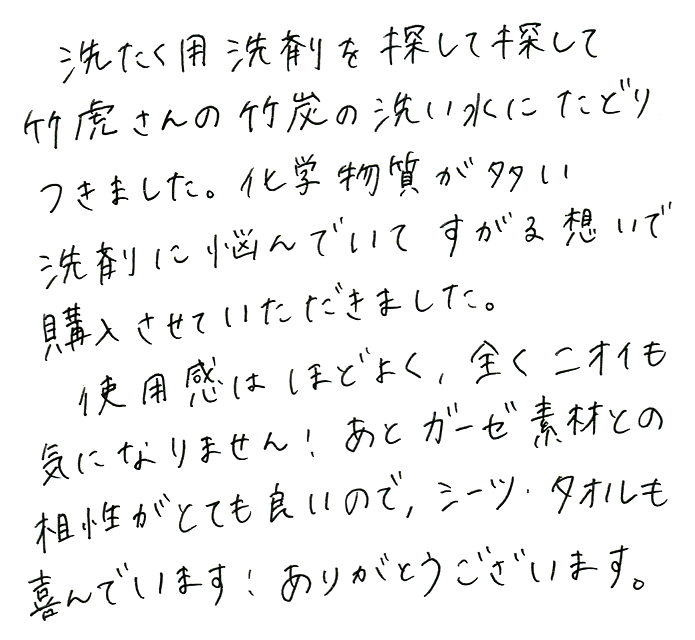 洗たく用洗剤を探して探して
竹虎さんの竹炭の洗い水にたどり
つきました。化学物質が多い
洗剤に悩んでいてすがる想いで
購入させていただきました。
使用感はほどよく、全くニオイも
気になりません！あとガーゼ素材との
相性がとても良いので、シーツ・タオルも
喜んでいます！ありがとうございます。